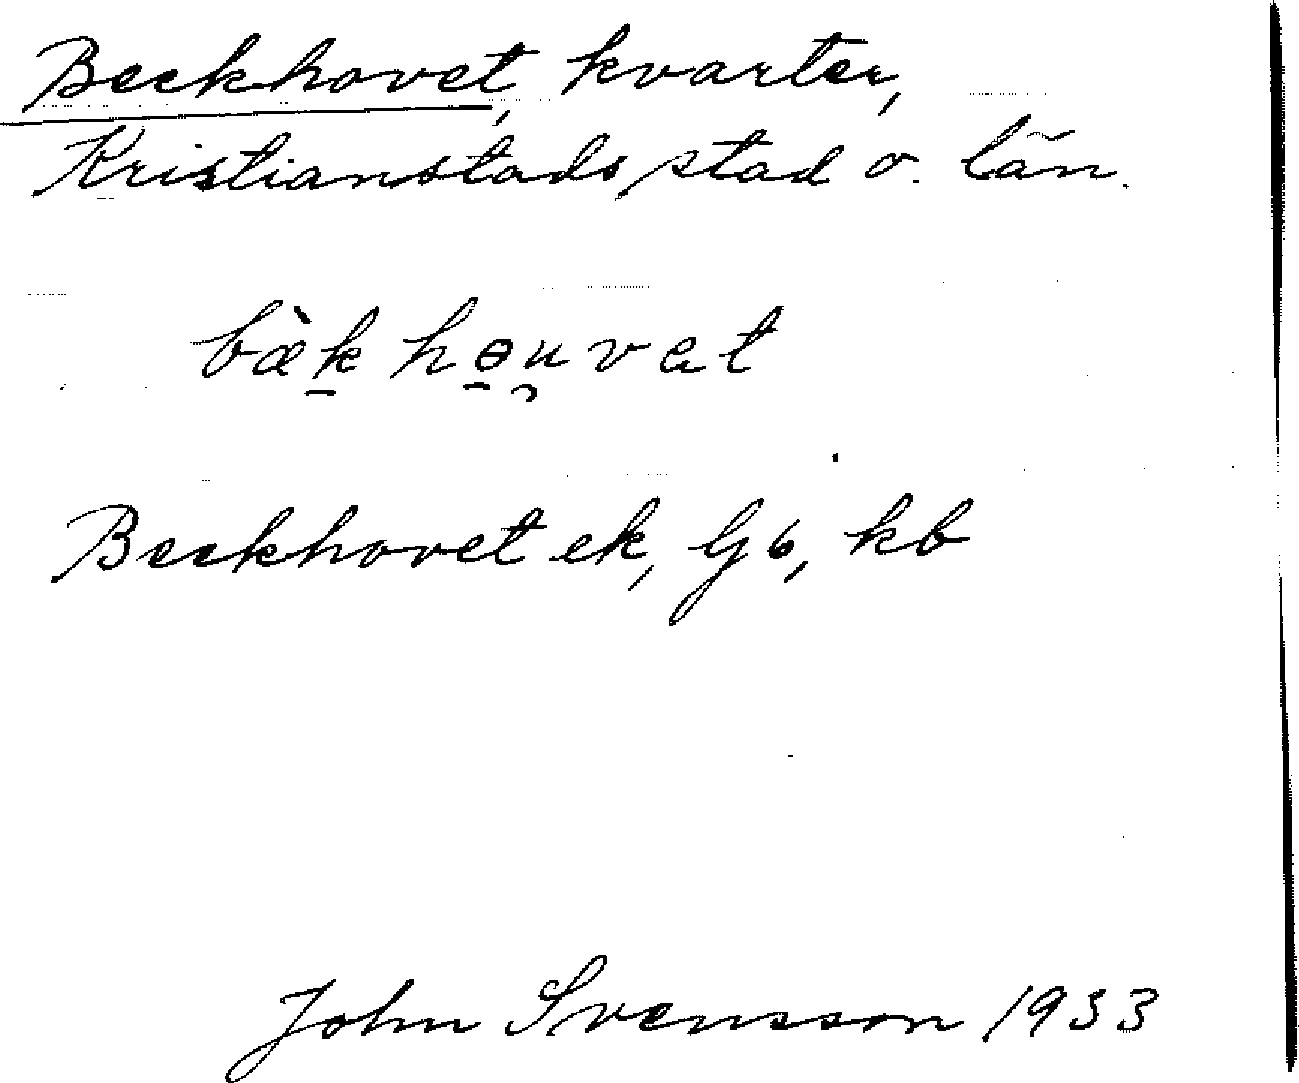 Beckhovet, kvarter,
Kristianstads stad o. län.
bæ̀k hɵu̯vat
Beckhovet ek, G6, kb
John Svensson 1933